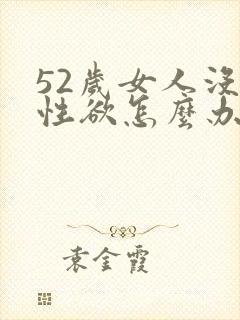 52歲女人沒
性欲怎麼办
袁金霞